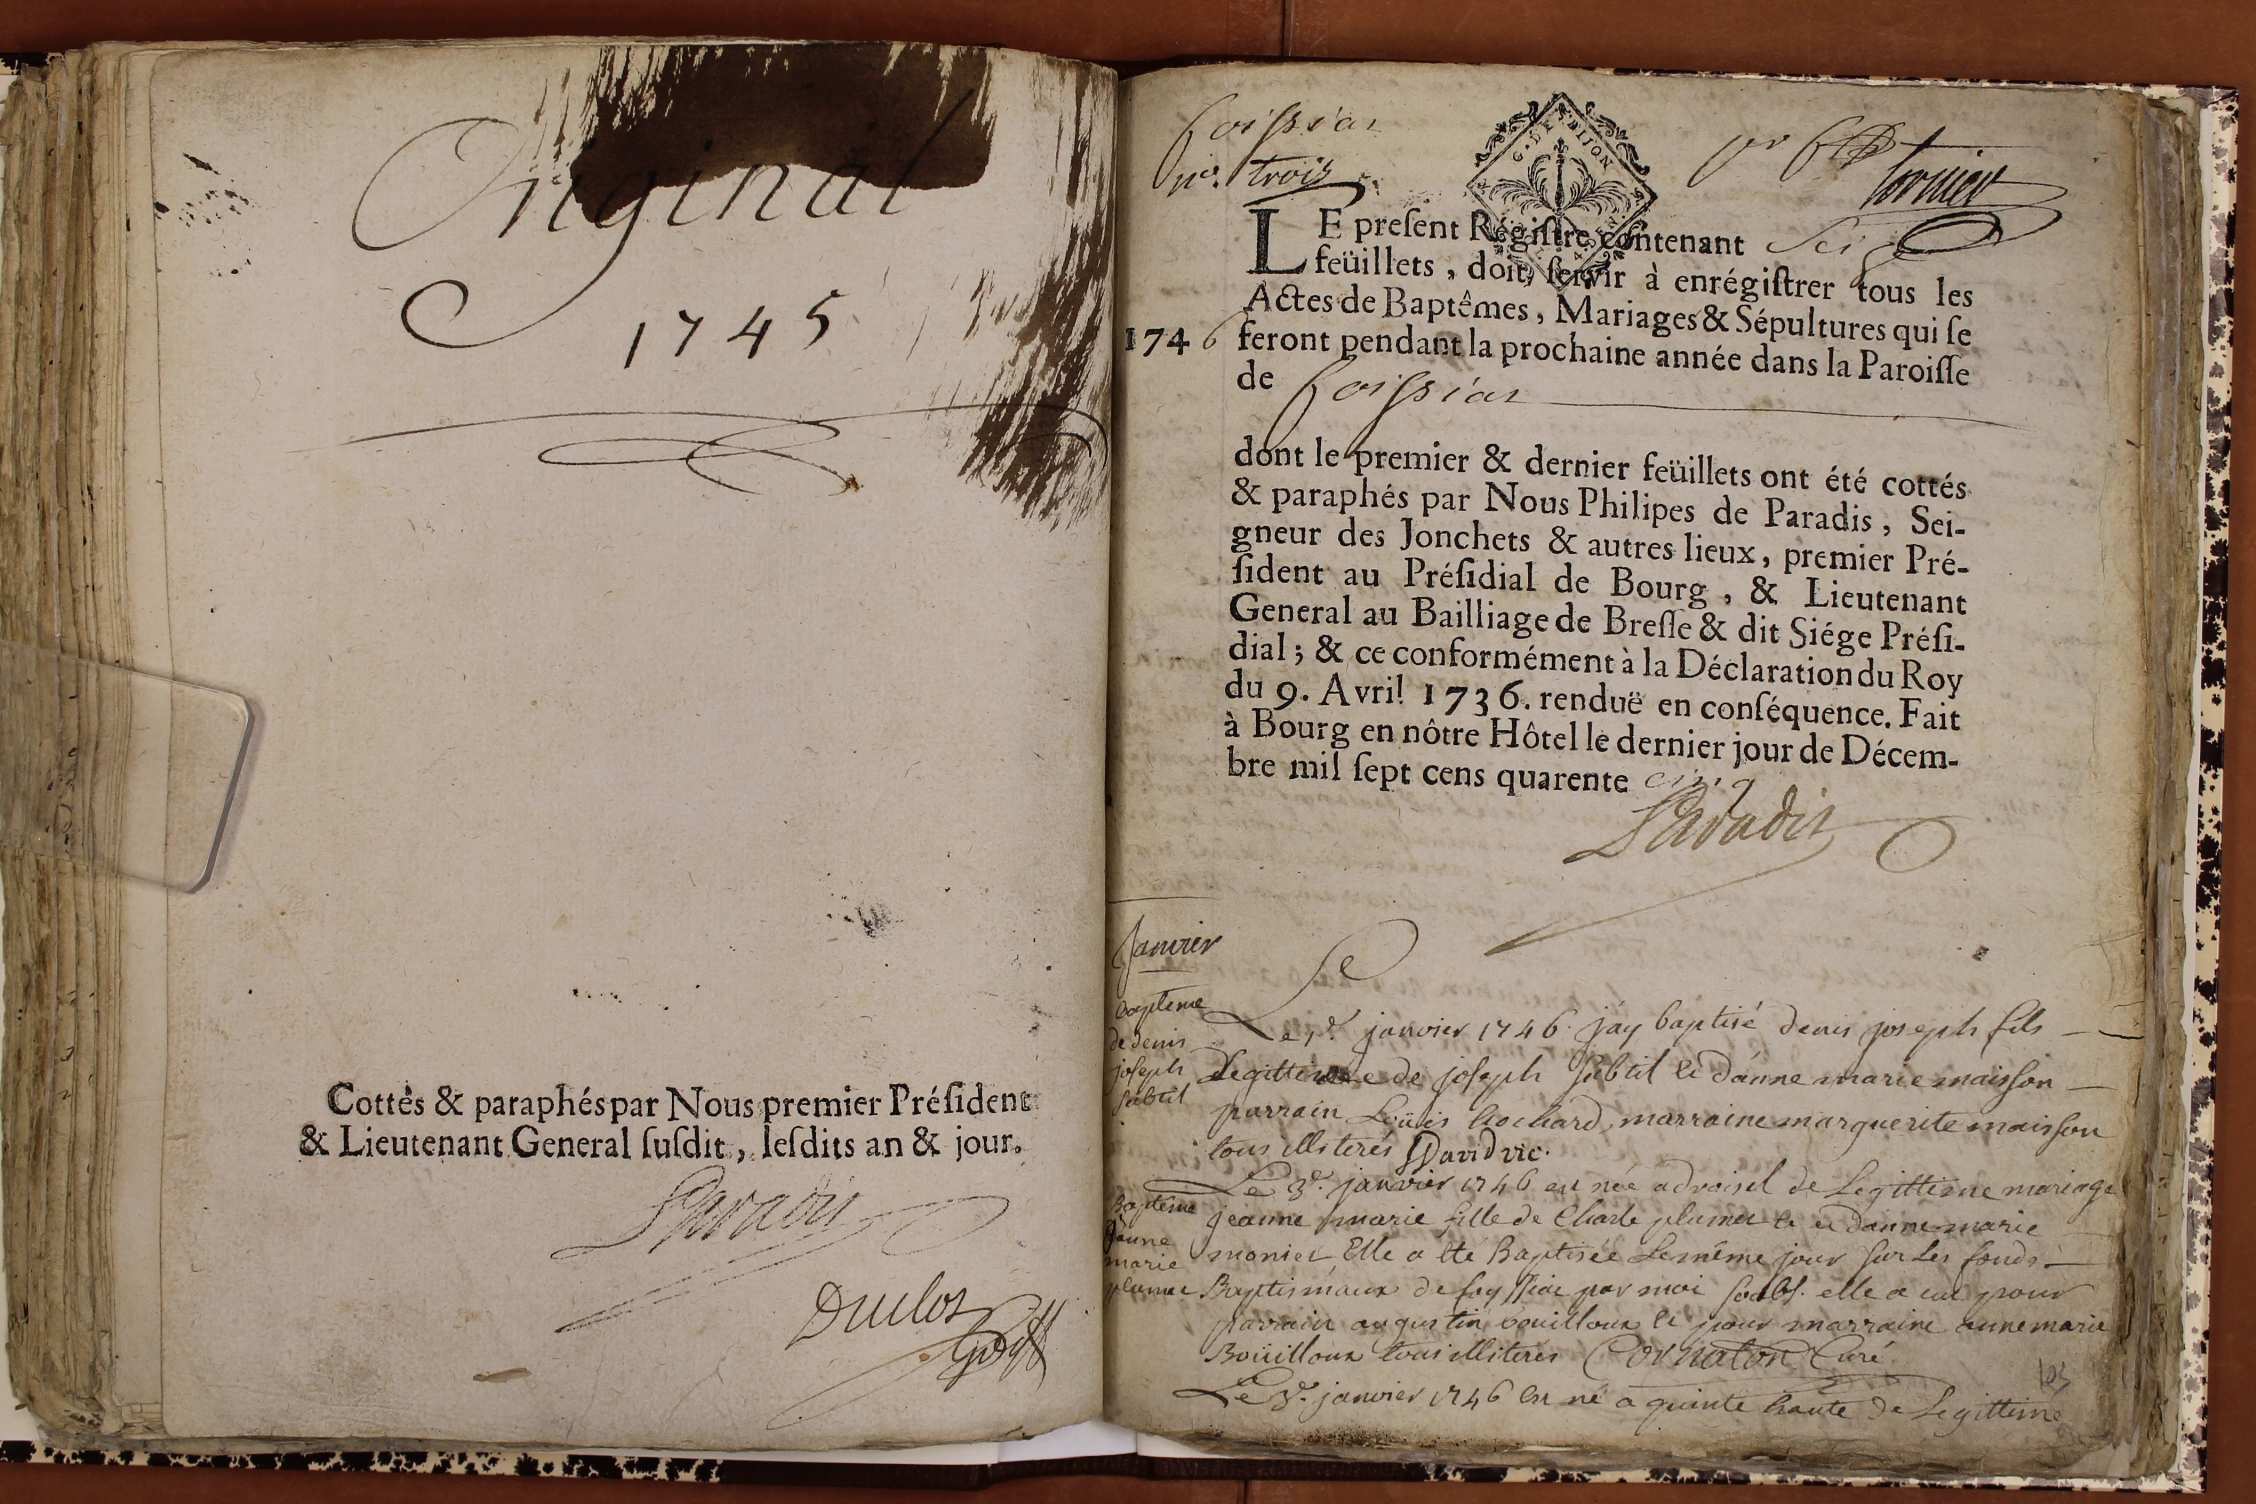 Original
1745
Cottés & paraphés par Nous premier Préſident
& Lieutenant General ſuſdit, leſdits an & jour.
Paradis
Duclos
foissiat
no. trois
G. DE DIJON
pr
Le preſent Régiſtre contenant Seize
feüillets, doit ſervir à enrégiſtrer tous les
Actes de Baptêmes, Mariages & Sépultures qui ſe
1746 feront pendant la prochaine année dans la Paroiſſe
de foissiat
dont le premier & dernier feüillets ont été cottés
& paraphés par Nous Philipes de Paradis, Sei-
gneur des Jonchets & autres lieux, premier Pré-
ſident au Préſidial de Bourg, & Lieutenant
General au Bailliage de Breſſe & dit Siége Préſi-
dial; & ce conformément à la Déclaration du Roy
du 9. Avril 1736. renduë en conſéquence. Fait
à Bourg en nôtre Hôtel le dernier jour de Décem-
bre mil ſept cens quarente cinq
Paradis
Janvier
Le
bapteme
de denis
joseph
subtil
Le 1er janvier 1746. jay baptisé denis joseph fils
Legittime de joseph subtil et d'anne marie maisson
parrain Loüis Cochard, marraine marguerite maisson
tous illiterés David vic.
Bapteme
jeanne
marie
plumet
Le 3e. janvier 1746 est née de Legittime mariage
jeanne marie fille de Charle plumet et d'anne marie
moniet Elle a ete Baptisée Le même jour sur Les fonds
Baptismaux de foyssiat par moi soubs. elle a eut pour
parrain augustin bouilloux et pour marraine anne marie
Boüilloux tous illiterés Cornaton Curé
Le 3e. janvier 1746 est né a quinte haute de Legittime
103